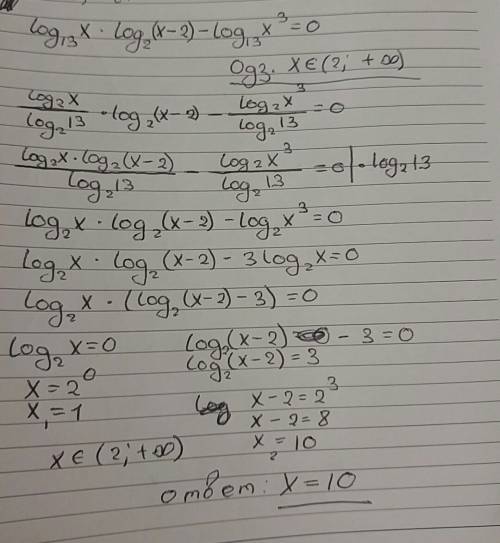 log₁₃x · log₂(x-2) - log₁₃x³ = 0
ОДЗ. x∈(2; +∞)
log₂x / log₂13 · log₂(x-2) - log₂x³ / log₂13 = 0
log₂x · log₂(x-2) / log₂13 - log₂x³ / log₂13 = 0 | · log₂13
log₂x · log₂(x-2) - log₂x³ = 0
log₂x · log₂(x-2) - 3log₂x = 0
log₂x · (log₂(x-2) - 3) = 0
log₂x = 0 log₂(x-2) - 3 = 0
log₂(x-2) = 3
x = 2⁰ x-2 = 2³
x₁ = 1 x-2 = 8
x∈(2; +∞) x₂ = 10
ответ: x = 10